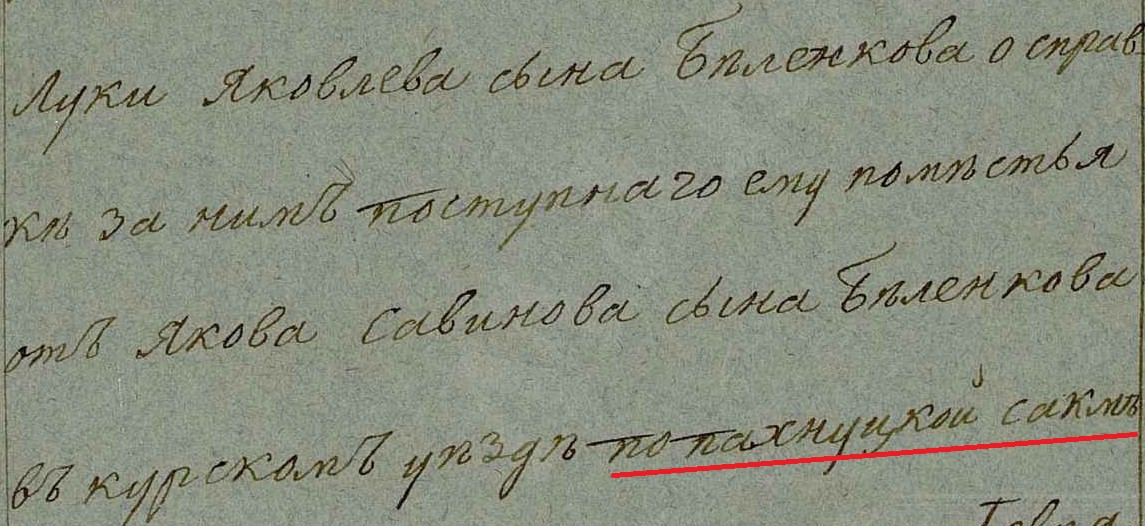 Луки Яковлева сына Бѣленкова о справ
кѣ за нимъ поступнаго ему помѣстья
отъ Якова Савинова сына Бѣленкова
въ курскомъ уѣздѣ по пахнуцкой сакмѣ